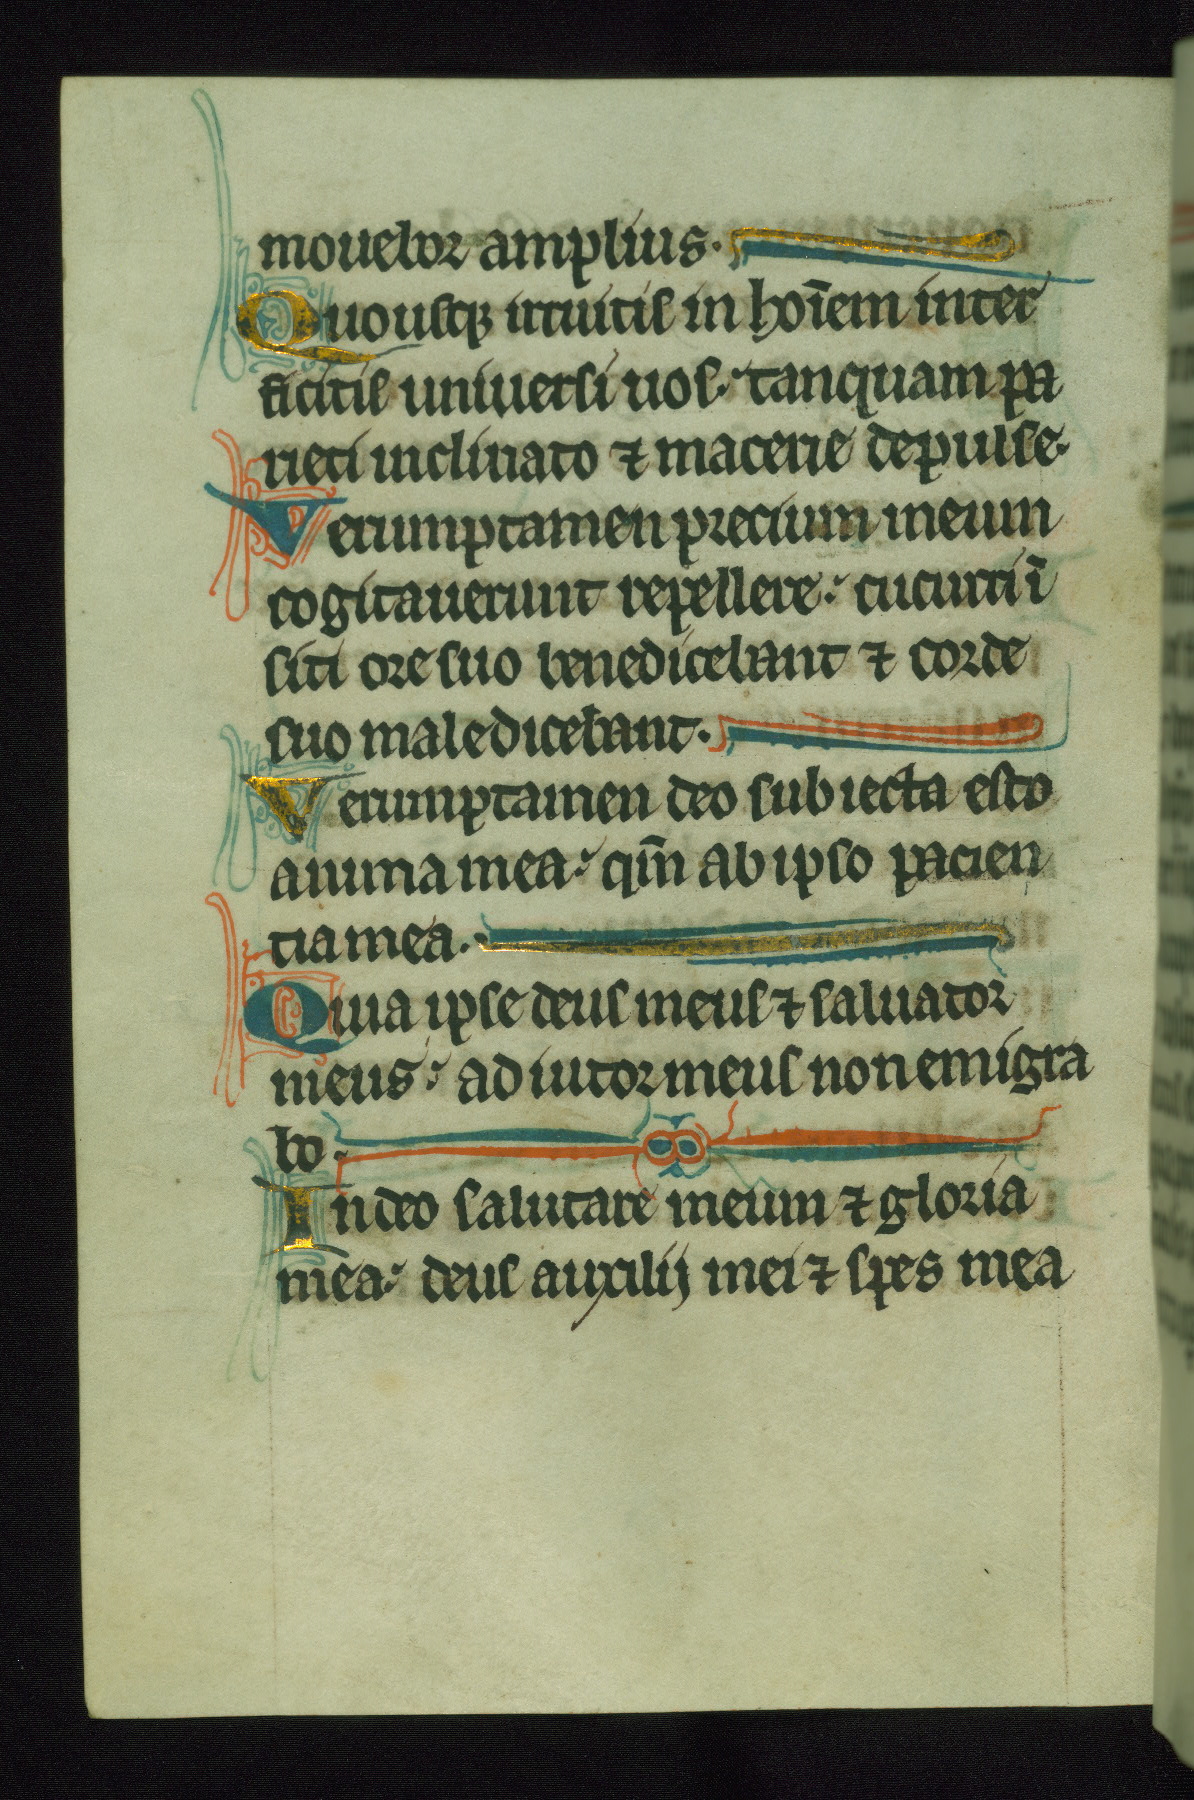 mouebor amplius.
Quousq irruitis in hoīem inter
ficitis uniuersi uos. tanquam pa
rieti inclinato ⁊ macerie depulse.
Verumptamen precium meum
cogitauerunt repellere: cucurri ī
siti ore suo benedicebant ⁊ corde
suo maledicebant.
Verumptamen deo subiecta esto
anima mea: qm̄ ab ipso pacien
tia mea.
Quia ipse deus meus ⁊ saluator
meus: adiutor meus non emigra
bo.
In deo salutare meum ⁊ gloria
mea: deus auxilij mei ⁊ spes mea